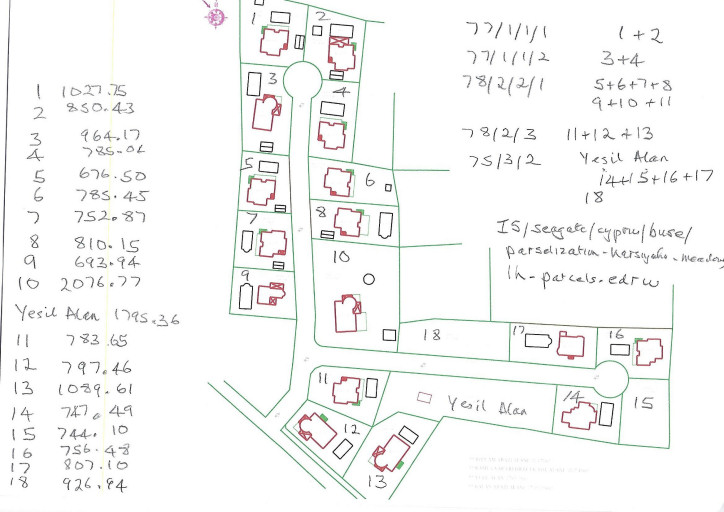 1 1027.75
2 850.43
3 964.17
4 785.01
5 676.50
6 785.45
7 752.87
8 810.15
9 693.94
10 2076.77
Yesil Alan 1795.36
11 783.65
12 797.46
13 1089.61
14 747.49
15 744.10
16 756.48
17 807.10
18 926.94
77/1/1/1 1+2
77/1/1/2 3+4
78/2/2/1 5+6+7+8
9+10+11
78/2/3 11+12+13
75/3/2 Yesil Alan
14+15+16+17
18
IS/seagate/cyprus/buse/
parselization-karsiyaka-meadow
1h-parcels.edrw
1
2
3
4
5
6
7
8
9
10
18
17
16
11
Yesil Alan
14
15
12
13